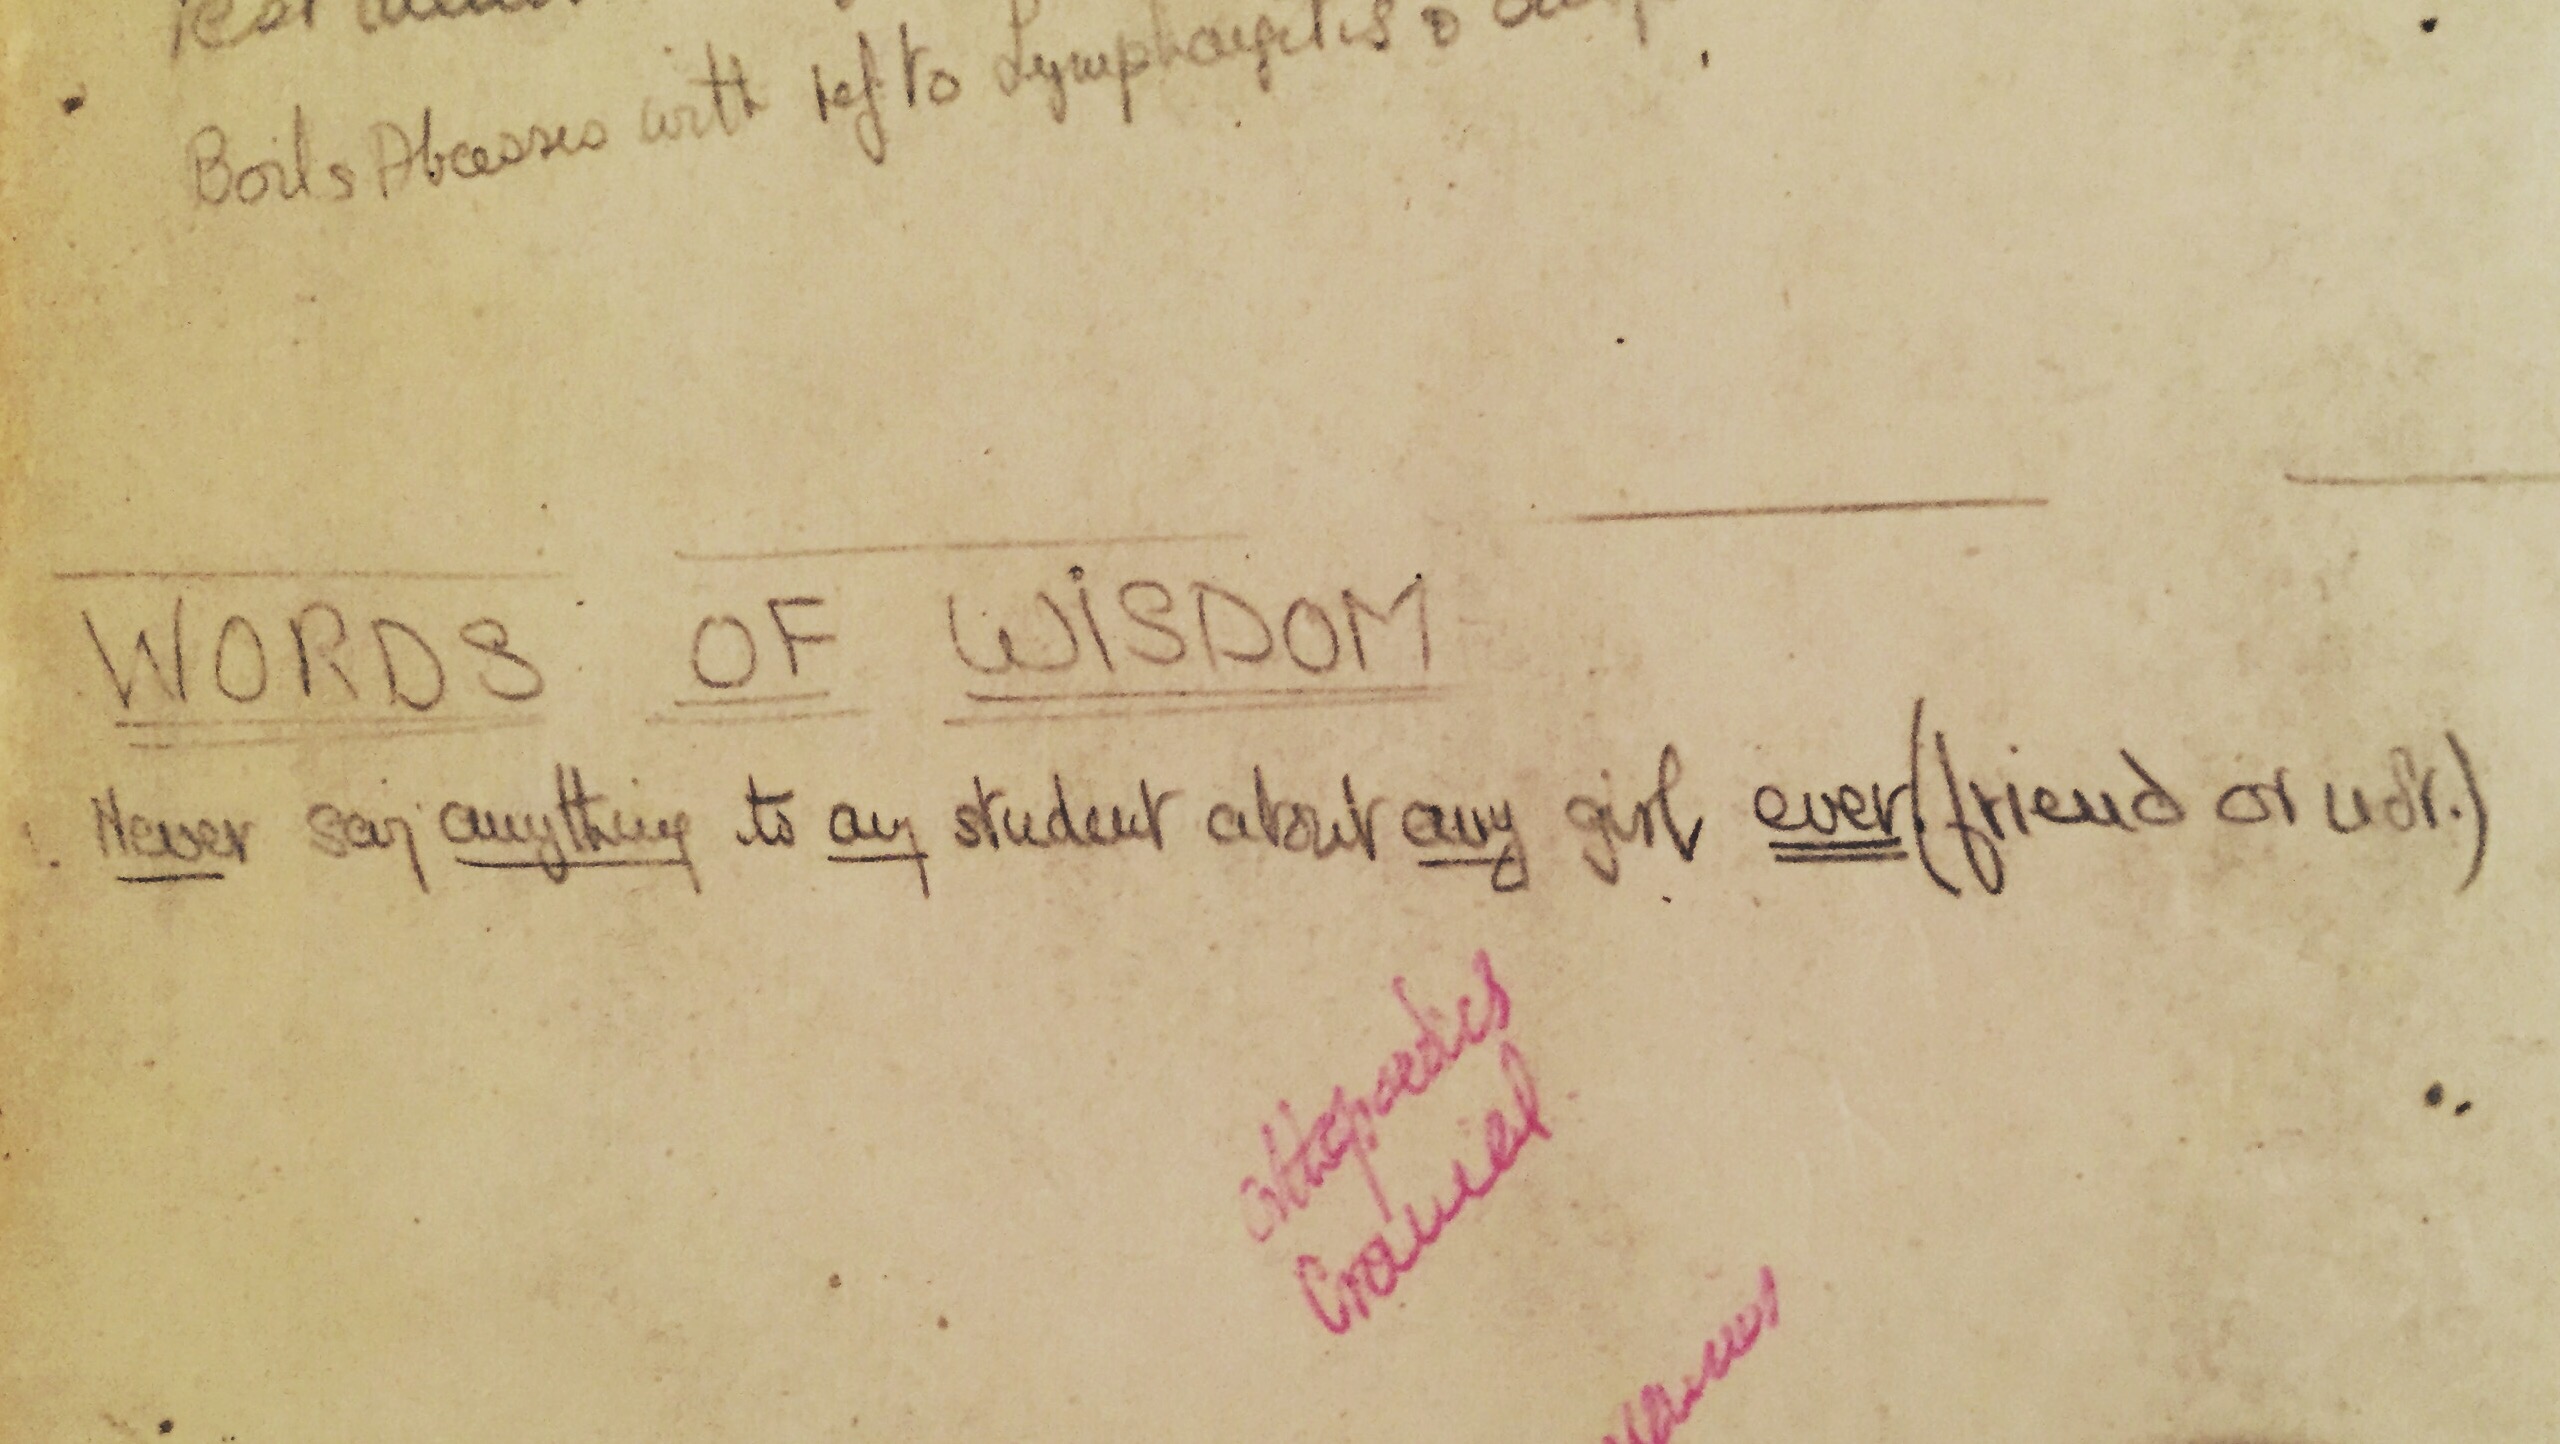 Boils Abcesses with ref to Lymphangitis &
WORDS OF WISDOM
1. Never say anything to any student about any girl ever (friend or
orthopaedics